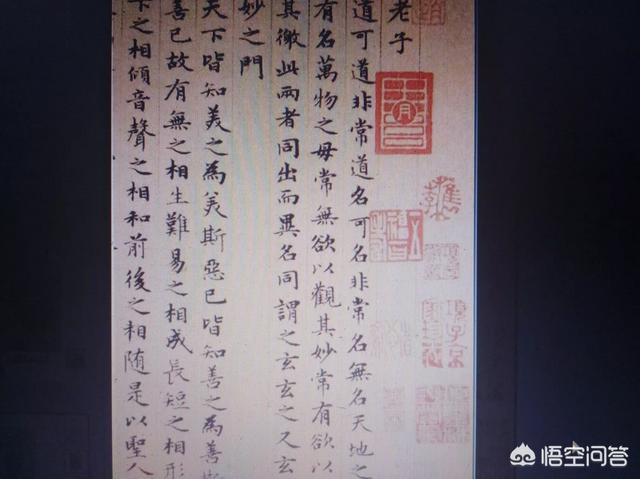 老子
道可道非常道名可名非常名無名天地之
有名萬物之母常無欲以觀其妙常有欲以
其徼此兩者同出而異名同謂之玄玄之又玄
妙之門
天下皆知美之為美斯惡已皆知善之為善
善已故有無之相生難易之相成長短之相形
下之相傾音聲之相和前後之相随是以聖人
悟空问答